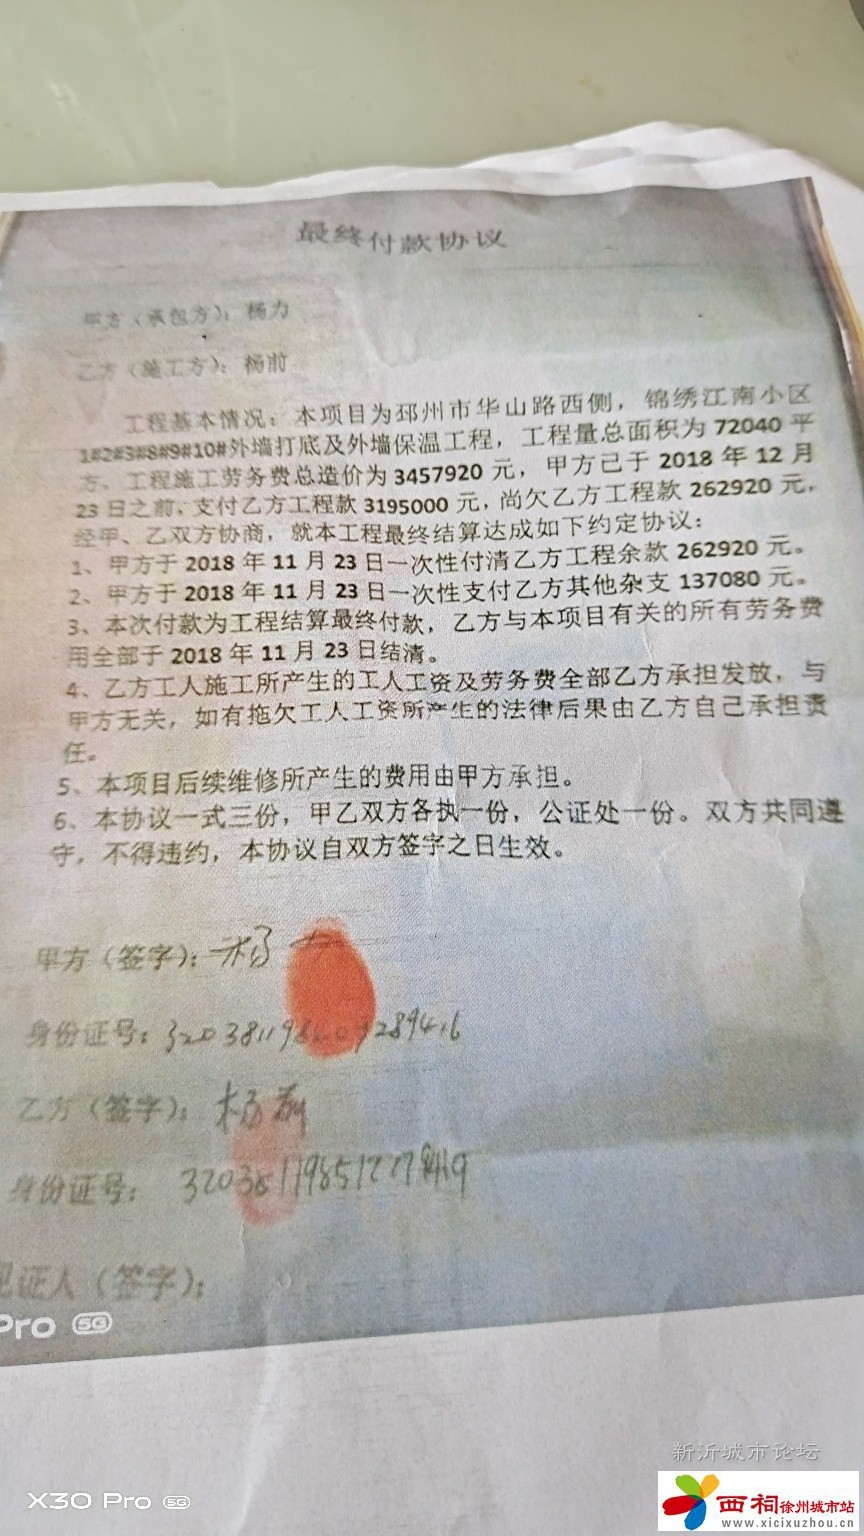 最终付款协议
甲方（承包方）：杨力
乙方（施工方）：杨前
工程基本情况：本项目为邳州市华山路西侧，锦绣江南小区
1#2#3#8#9#10#外墙打底及外墙保温工程，工程量总面积为 72040 平
方、工程施工劳务费总造价为 3457920 元，甲方已于 2018 年 12 月
23 日之前，支付乙方工程款 3195000 元，尚欠乙方工程款 262920 元，
经甲、乙双方协商，就本工程最终结算达成如下约定协议：
1、甲方于 2018 年 11 月 23 日一次性付清乙方工程余款 262920 元。
2、甲方于 2018 年 11 月 23 日一次性支付乙方其他杂支 137080 元。
3、本次付款为工程结算最终付款，乙方与本项目有关的所有劳务费
用全部于 2018 年 11 月 23 日结清。
4、乙方工人施工所产生的工人工资及劳务费全部乙方承担发放，与
甲方无关，如有拖欠工人工资所产生的法律后果由乙方自己承担责
任。
5、本项目后续维修所产生的费用由甲方承担。
6、本协议一式三份，甲乙双方各执一份，公证处一份。双方共同遵
守，不得违约，本协议自双方签字之日生效。
甲方（签字）：杨
身份证号：
乙方（签字）：杨前
身份证号：
见证人（签字）：
Pro 5G
X30 Pro 5G
新沂城市论坛
西祠徐州城市站
www.xicixuzhou.cn